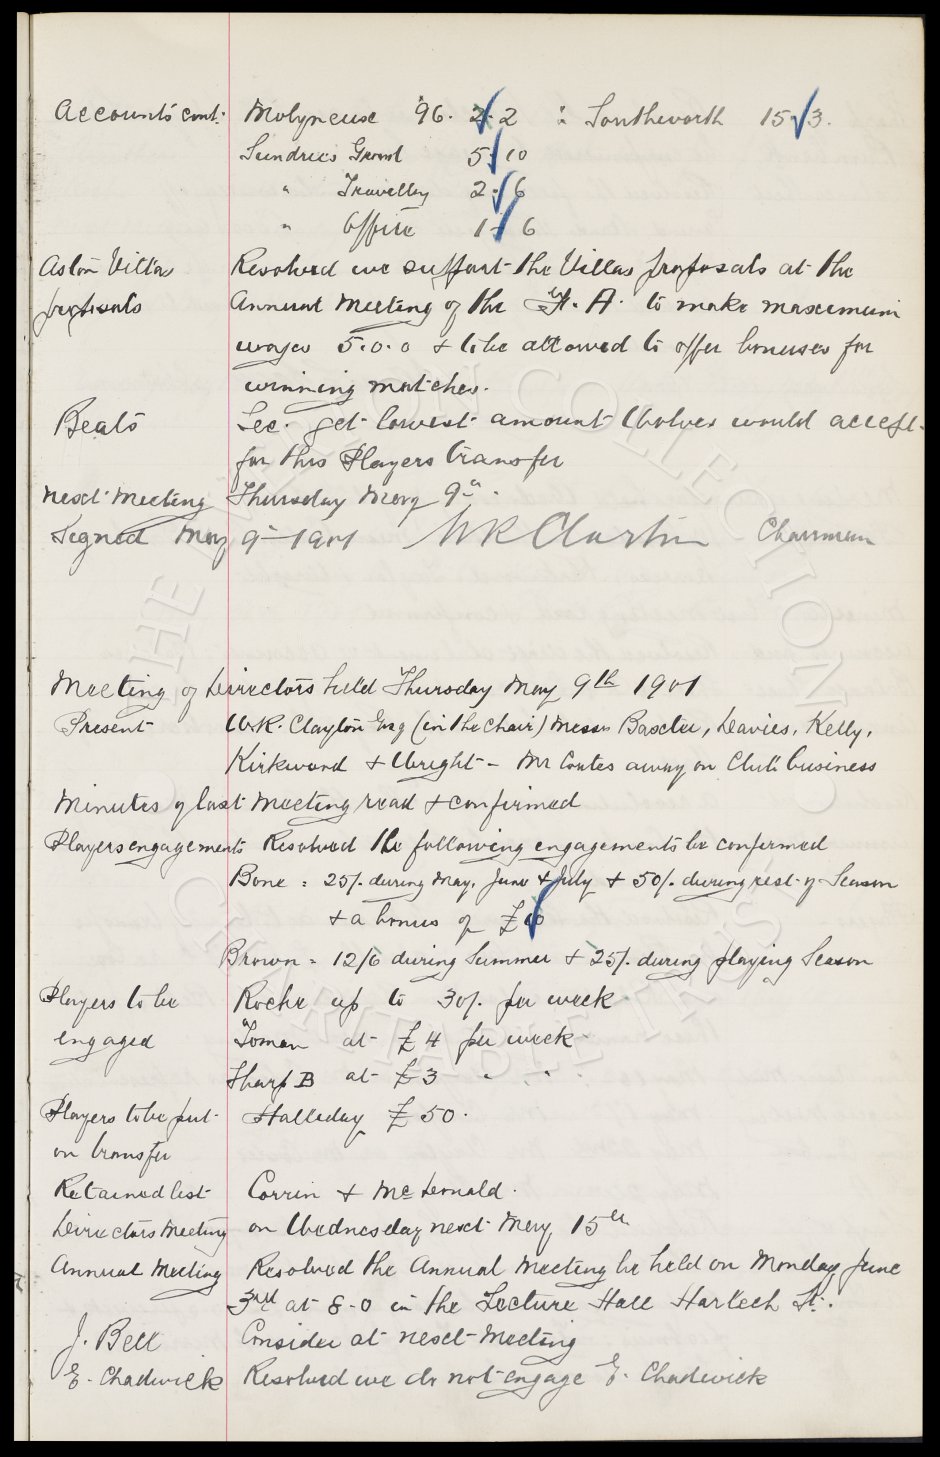 Accounts cont: Molyneux 96. 2.2 : Southworth 15.3.
Sundries Ground 5.10
" Travelling 2.6
" Office 1.6
Aston Villa Resolved we support the Villas proposals at the
proposals Annual Meeting of the F. A. to make maximum
wages 5.0.0 & to be allowed to offer bonuses for
winning matches.
Beats Sec. get lowest amount Wolves would accept
for this Players transfer
Next Meeting Thursday May 9th.
Signed May 9th 1901 W R Clayton Chairman
Meeting of Directors held Thursday May 9th 1901
Present W.R. Clayton Esq (in the Chair) Messrs Baxter, Davies, Kelly,
Kirkwood & Wright - Mr Coates away on Club business
Minutes of last Meeting read & confirmed
Players engagements Resolved the following engagements be confirmed
Bone = 25/. during May, June & July & 50/. during rest of Season
& a bonus of £10
Brown = 12/6 during Summer & 25/. during playing Season
Players to be Roche up to 30/. per week
engaged Toman at £4 per week
Sharp B at £3 " "
Players to be put Halleday £50.
on transfer
Retained list Corrin & McDonald.
Directors Meeting on Wednesday next May 15th
Annual Meeting Resolved the Annual Meeting be held on Monday June
3rd at 8-0 in the Lecture Hall Harlech St.
J. Bell Consider at next Meeting
E. Chadwick Resolved we do not engage E. Chadwick
THE EVERTON COLLECTION
CHARITABLE TRUST